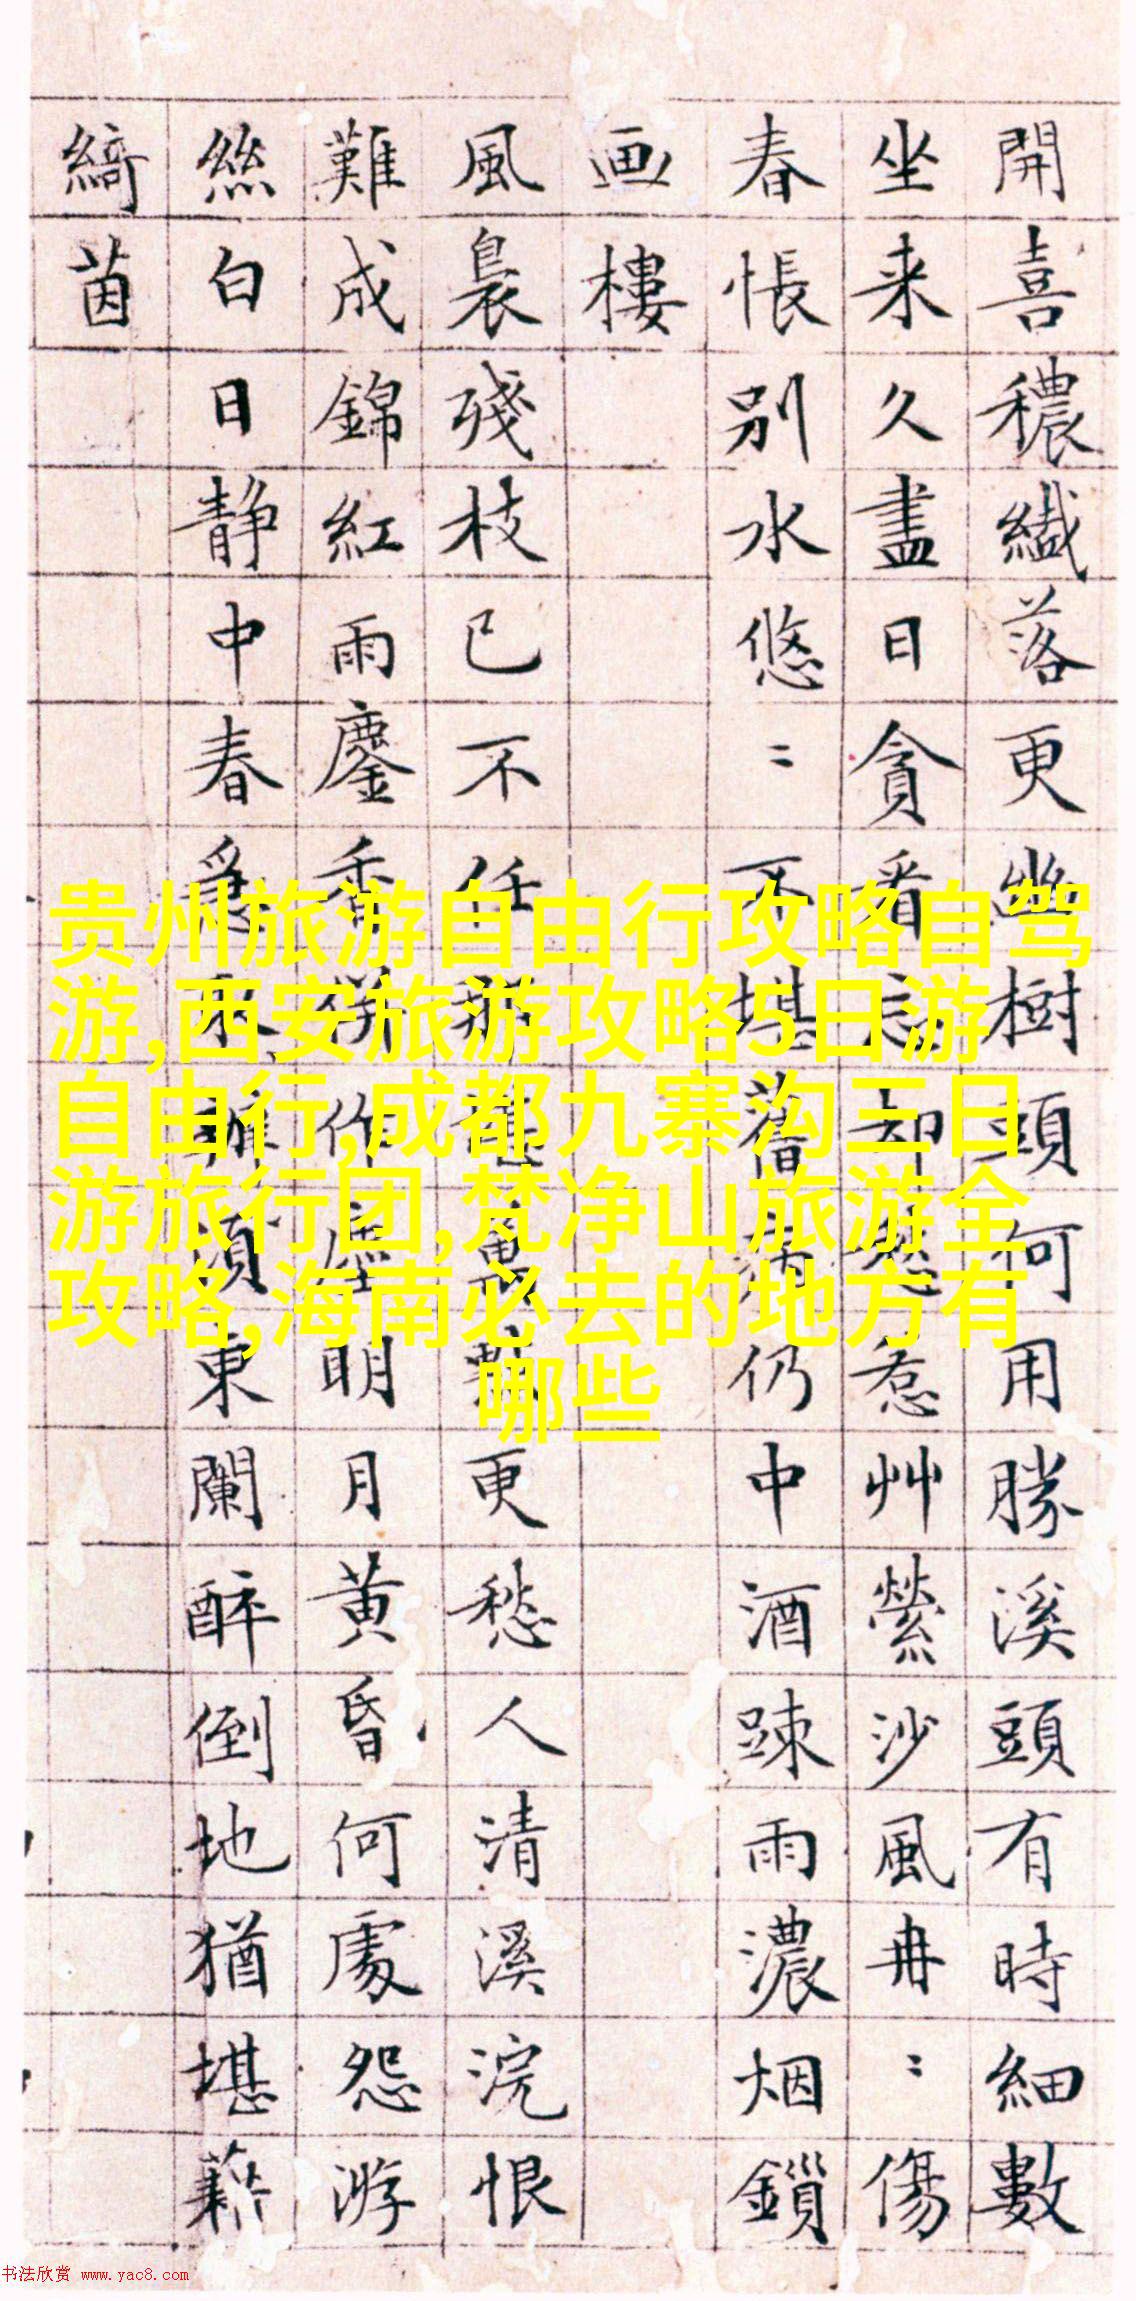 贵州旅游自由行攻略自驾
游,西安旅游攻略5日游
自由行,成都九寨沟三日
游旅行团,梵净山旅游全
攻略,海南必去的地方有
哪些
開喜穠纖落更幽樹頭何用勝溪頭有時細數
坐来久盡日貪看忘却愁惹艸縈沙風冉〻傷
春悵别水悠〻不堪舊病仍中酒踈雨濃烟鎖
画樓
風裊殘枝已不任那萬更愁人清溪浣恨
難成錦紅雨鏖香併作塵明月黄昏何處怨游
絲白日静中春來須東闌醉倒地猶堪藉
綺茵
书法欣赏 www.yac8.com